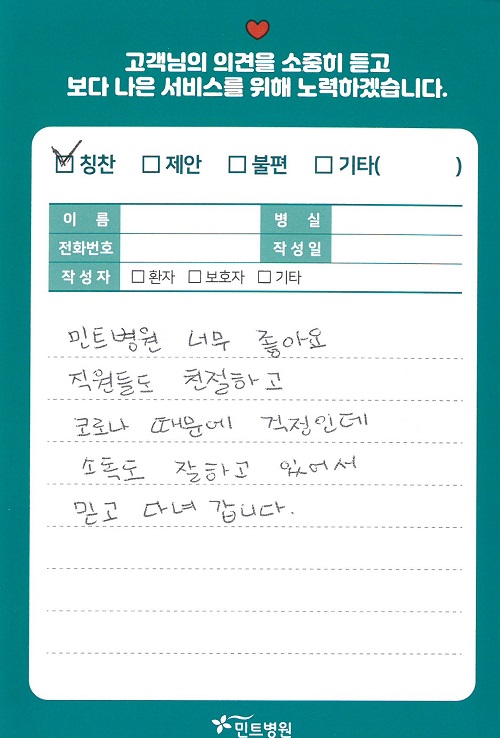 고객님의 의견을 소중히 듣고
보다 나은 서비스를 위해 노력하겠습니다.
칭찬 제안 불편 기타( )
이 름 병 실
전화번호 작성일
작성자 환자 보호자 기타
민트병원 너무 좋아요
직원들도 친절하고
코로나 때문에 걱정인데
소독도 잘하고 있어서
믿고 다녀 갑니다.
민트병원